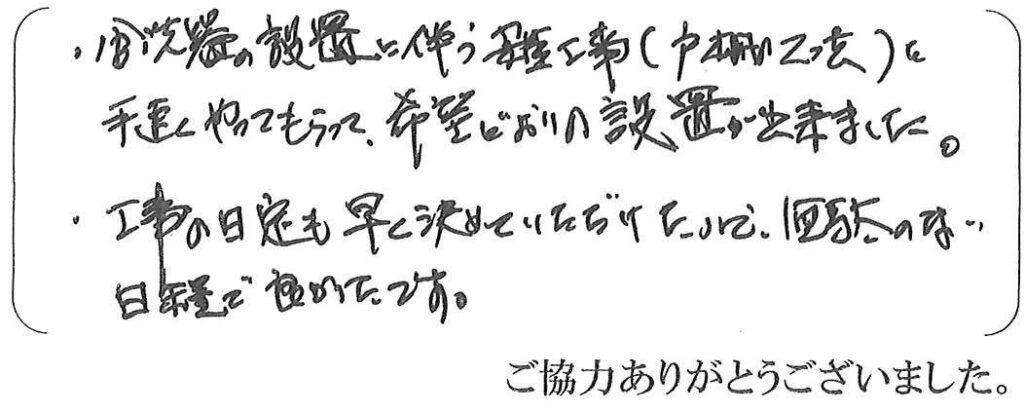 ・食洗器の設置に伴う各種工事(戸棚の工夫)に
手速くやってもらって、希望どおりの設置が出来ました。
・工事の日定も早く決めていただけたので、無駄のない
日程で良かったです。
ご協力ありがとうございました。